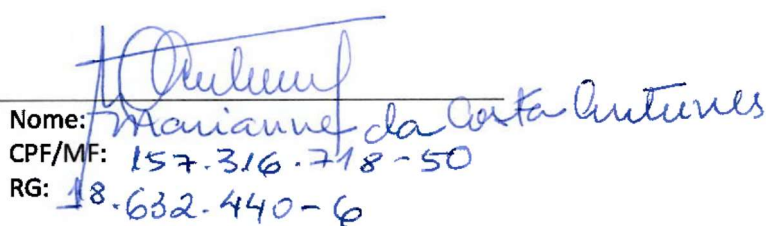 Nome: Marianne da Costa Antunes
CPF/MF: 157.316.718-50
RG: 18.632.440-6